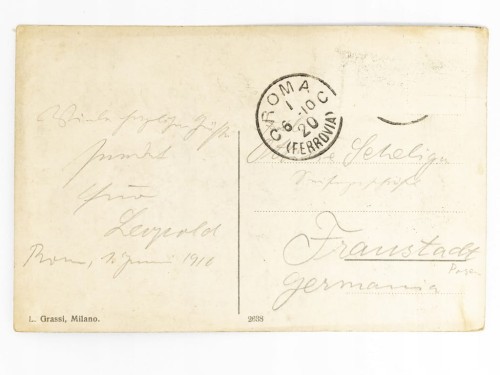 Viele herzliche Grüße
sendet
Leopold
Rom, 1. Juni 1910
ROMA
1
6 -10
20
(FERROVIA)
Schelign
Fraustadt
Posen
Germania
L. Grassi, Milano.
2638